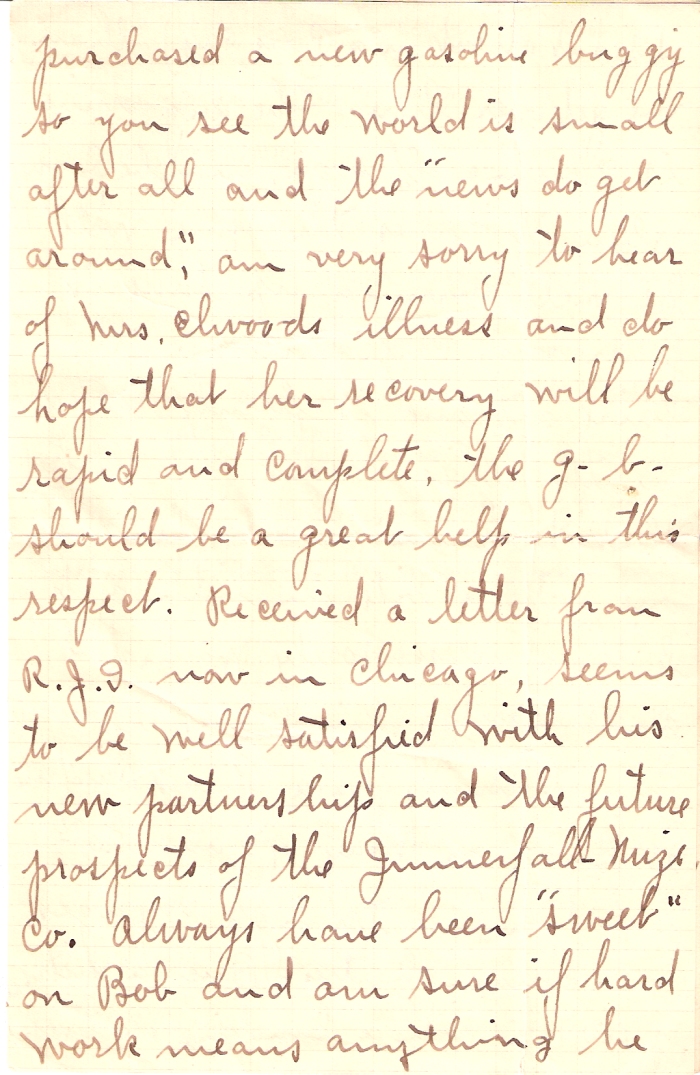 purchased a new gasoline buggy
so you see the world is small
after all and the "news do get
around", am very sorry to hear
of Mrs. Elwoods illness and do
hope that her recovery will be
rapid and complete, the g- b-
should be a great help in this
respect. Received a letter from
R.J.I. now in Chicago, seems
to be well satisfied with his
new partnership and the future
prospects of the
Co. Always have been "sweet"
on Bob and am sure if hard
work means anything he